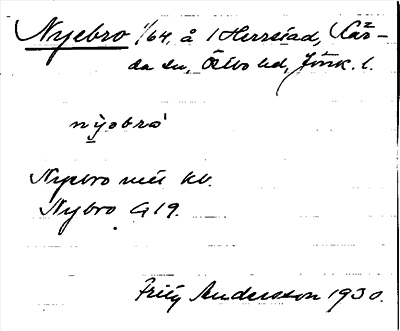 Nyebro 1/64, å 1 Herrstad, Kär-
da sn, Östbo hd, Jönk. l.
nybro
Nyebro enl kb.
Nybro G 19.
Fritz Andersson 1930.